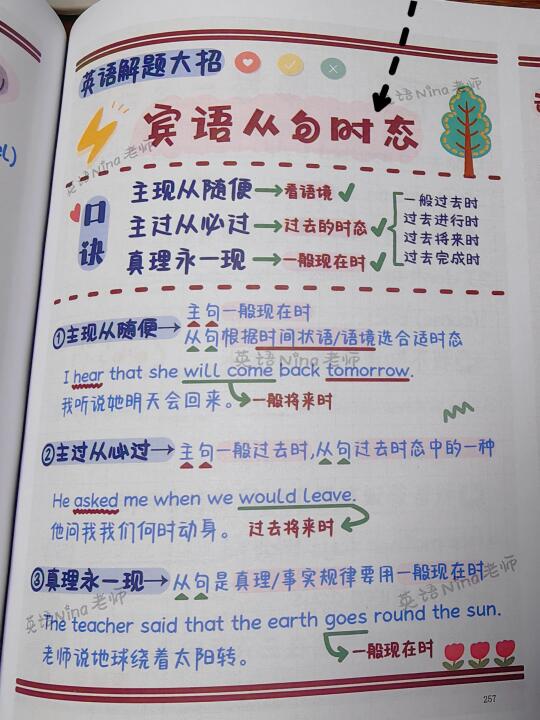 英语解题大招
宾语从句时态
英语Nina老师
英语Nina老师
口诀
主现从随便→看语境✓
主过从必过→过去的时态✓
真理永一现→一般现在时✓
一般过去时
过去进行时
过去将来时
过去完成时
①主现从随便→主句一般现在时
从句根据时间状语/语境选合适时态
英语Nina老师
I hear that she will come back tomorrow.
我听说她明天会回来。→一般将来时
②主过从必过→主句一般过去时,从句过去时态中的一种
He asked me when we would leave.
他问我我们何时动身。 过去将来时
③真理永一现→从句是真理/事实规律要用一般现在时
英语Nina老师
英语Nina老师
The teacher said that the earth goes round the sun.
老师说地球绕着太阳转。 →一般现在时
257